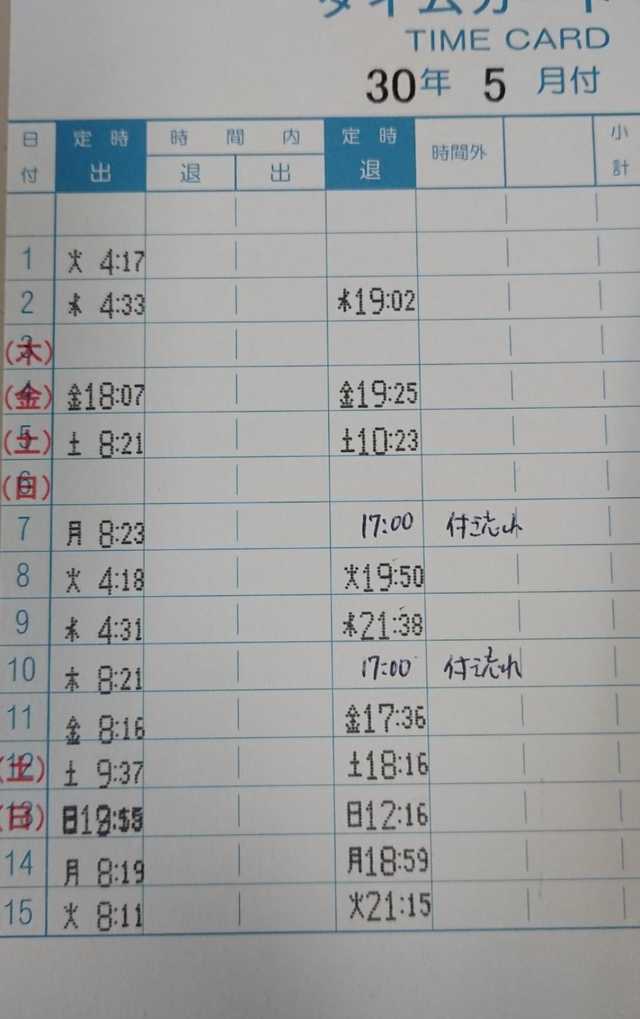 タイムカード
TIME CARD
30年 5 月付
日付 定時 出 時間内 退 出 定時 退 時間外 小計
1 火 4:17
2 水 4:33 水19:02
3 (木)
4 (金) 金18:07 金19:25
5 (土) 土 8:21 土10:23
6 (日)
7 月 8:23 17:00 付け忘れ
8 火 4:18 火19:50
9 水 4:31 水21:38
10 木 8:21 17:00 付け忘れ
11 金 8:16 金17:36
12 (土) 土 9:37 土18:16
13 (日) 日 日12:16
14 月 8:19 月18:59
15 火 8:11 火21:15